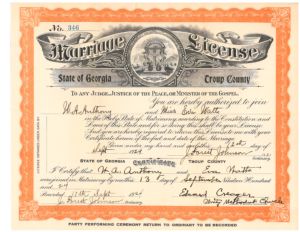 No. 346
Marriage License.
State of Georgia Troup County
TO ANY JUDGE, JUSTICE OF THE PEACE, OR MINISTER OF THE GOSPEL.
You are hereby authorized to join
W. A. Anthony and Miss Eva Watts
in the Holy State of Matrimony, according to the Constitution and
Laws of this State and for so doing this shall be your
And you are hereby required to return this License to me with your
Certificate hereon of the fact and date of the Marriage.
Given under my hand and seal this 12th day of
Sept 1924 Forrest Johnson
STATE OF GEORGIA Certificate TROUP COUNTY
I Certify that W. A. Anthony and Eva Watts
were joined in Matrimony by me this 13 day of September Nineteen Hundred
and 24
Recorded Sept 1924
Forrest Johnson
Methodist Church
PARTY PERFORMING CEREMONY RETURN TO ORDINARY TO BE RECORDED